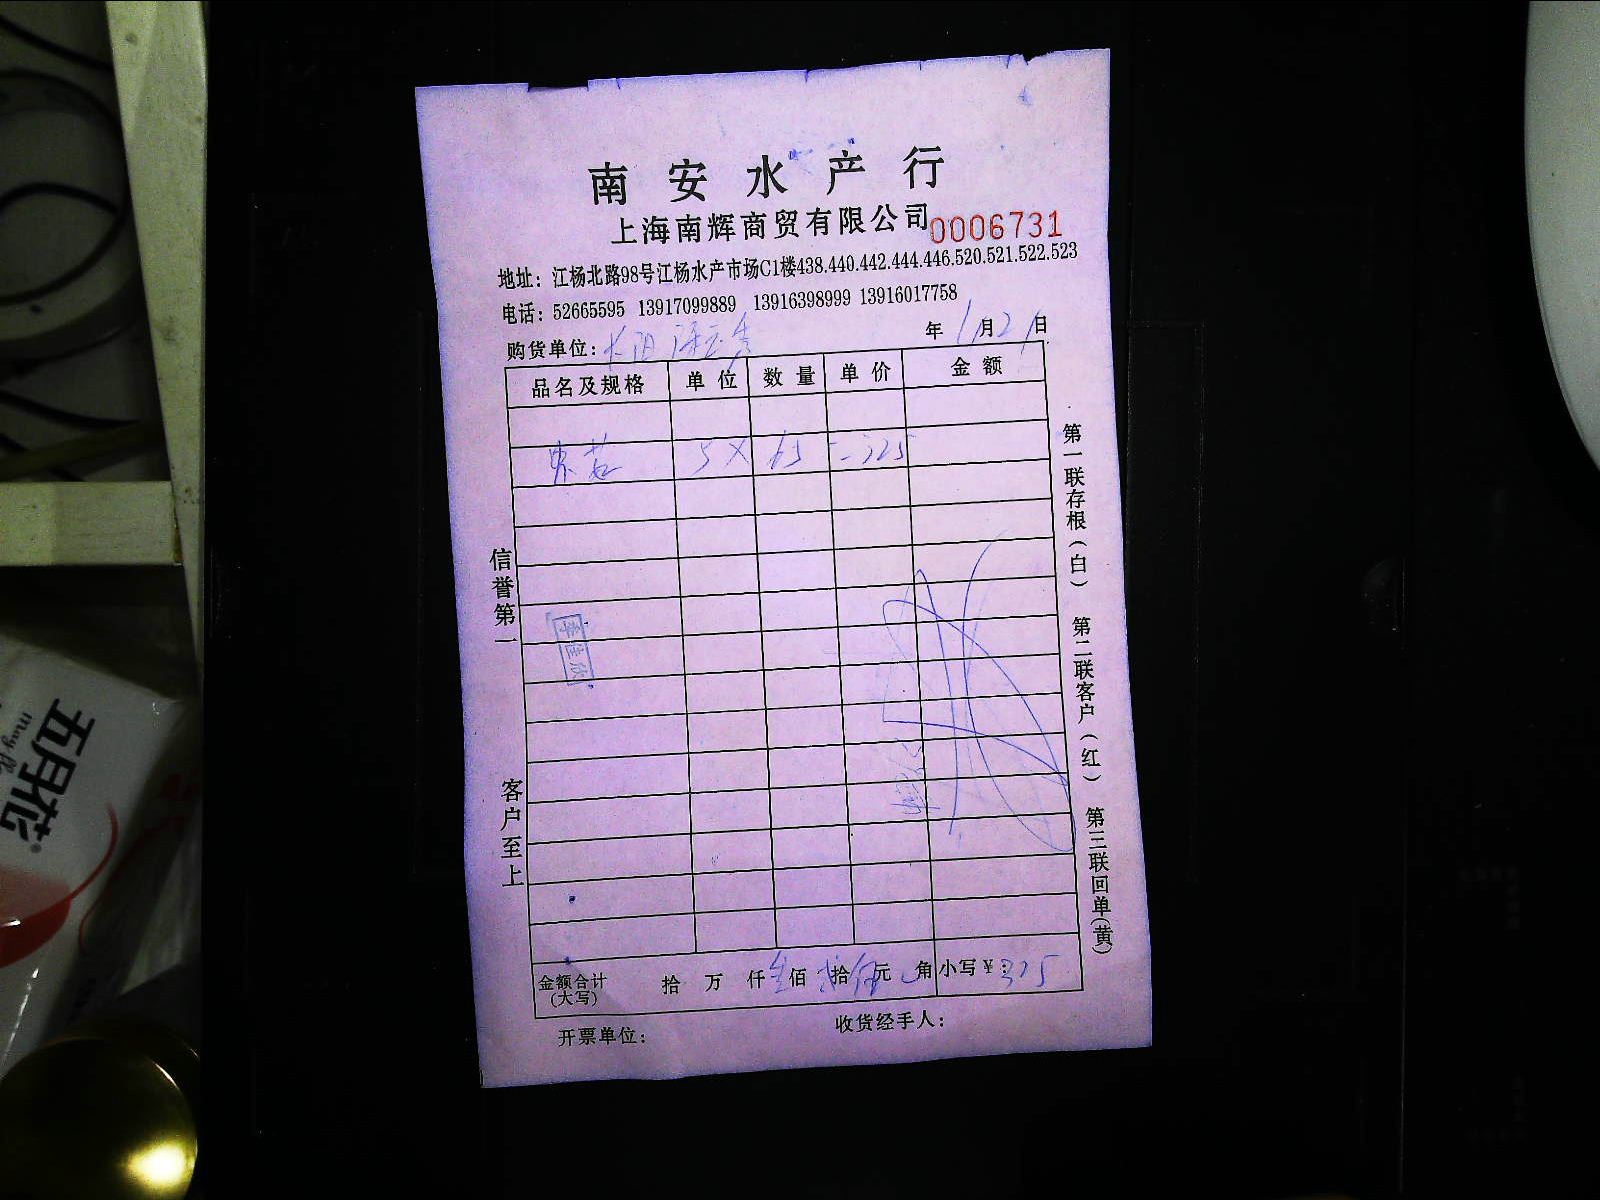 南安水产行
上海南辉商贸有限公司 0006731
地址：江杨北路98号江杨水产市场C1楼438.440.442.444.446.520.521.522.523
电话：52665595 13917099889 13916398999 13916017758
购货单位：
年 1月21日
品名及规格 单位 数量 单价 金额
5 X 65 = 325
信誉第一
客户至上
第一联存根（白） 第二联客户（红） 第三联回单（黄）
金额合计（大写） 拾 万 仟 佰 拾 元 角 小写￥：325
开票单位： 收货经手人：
五月花
may fl